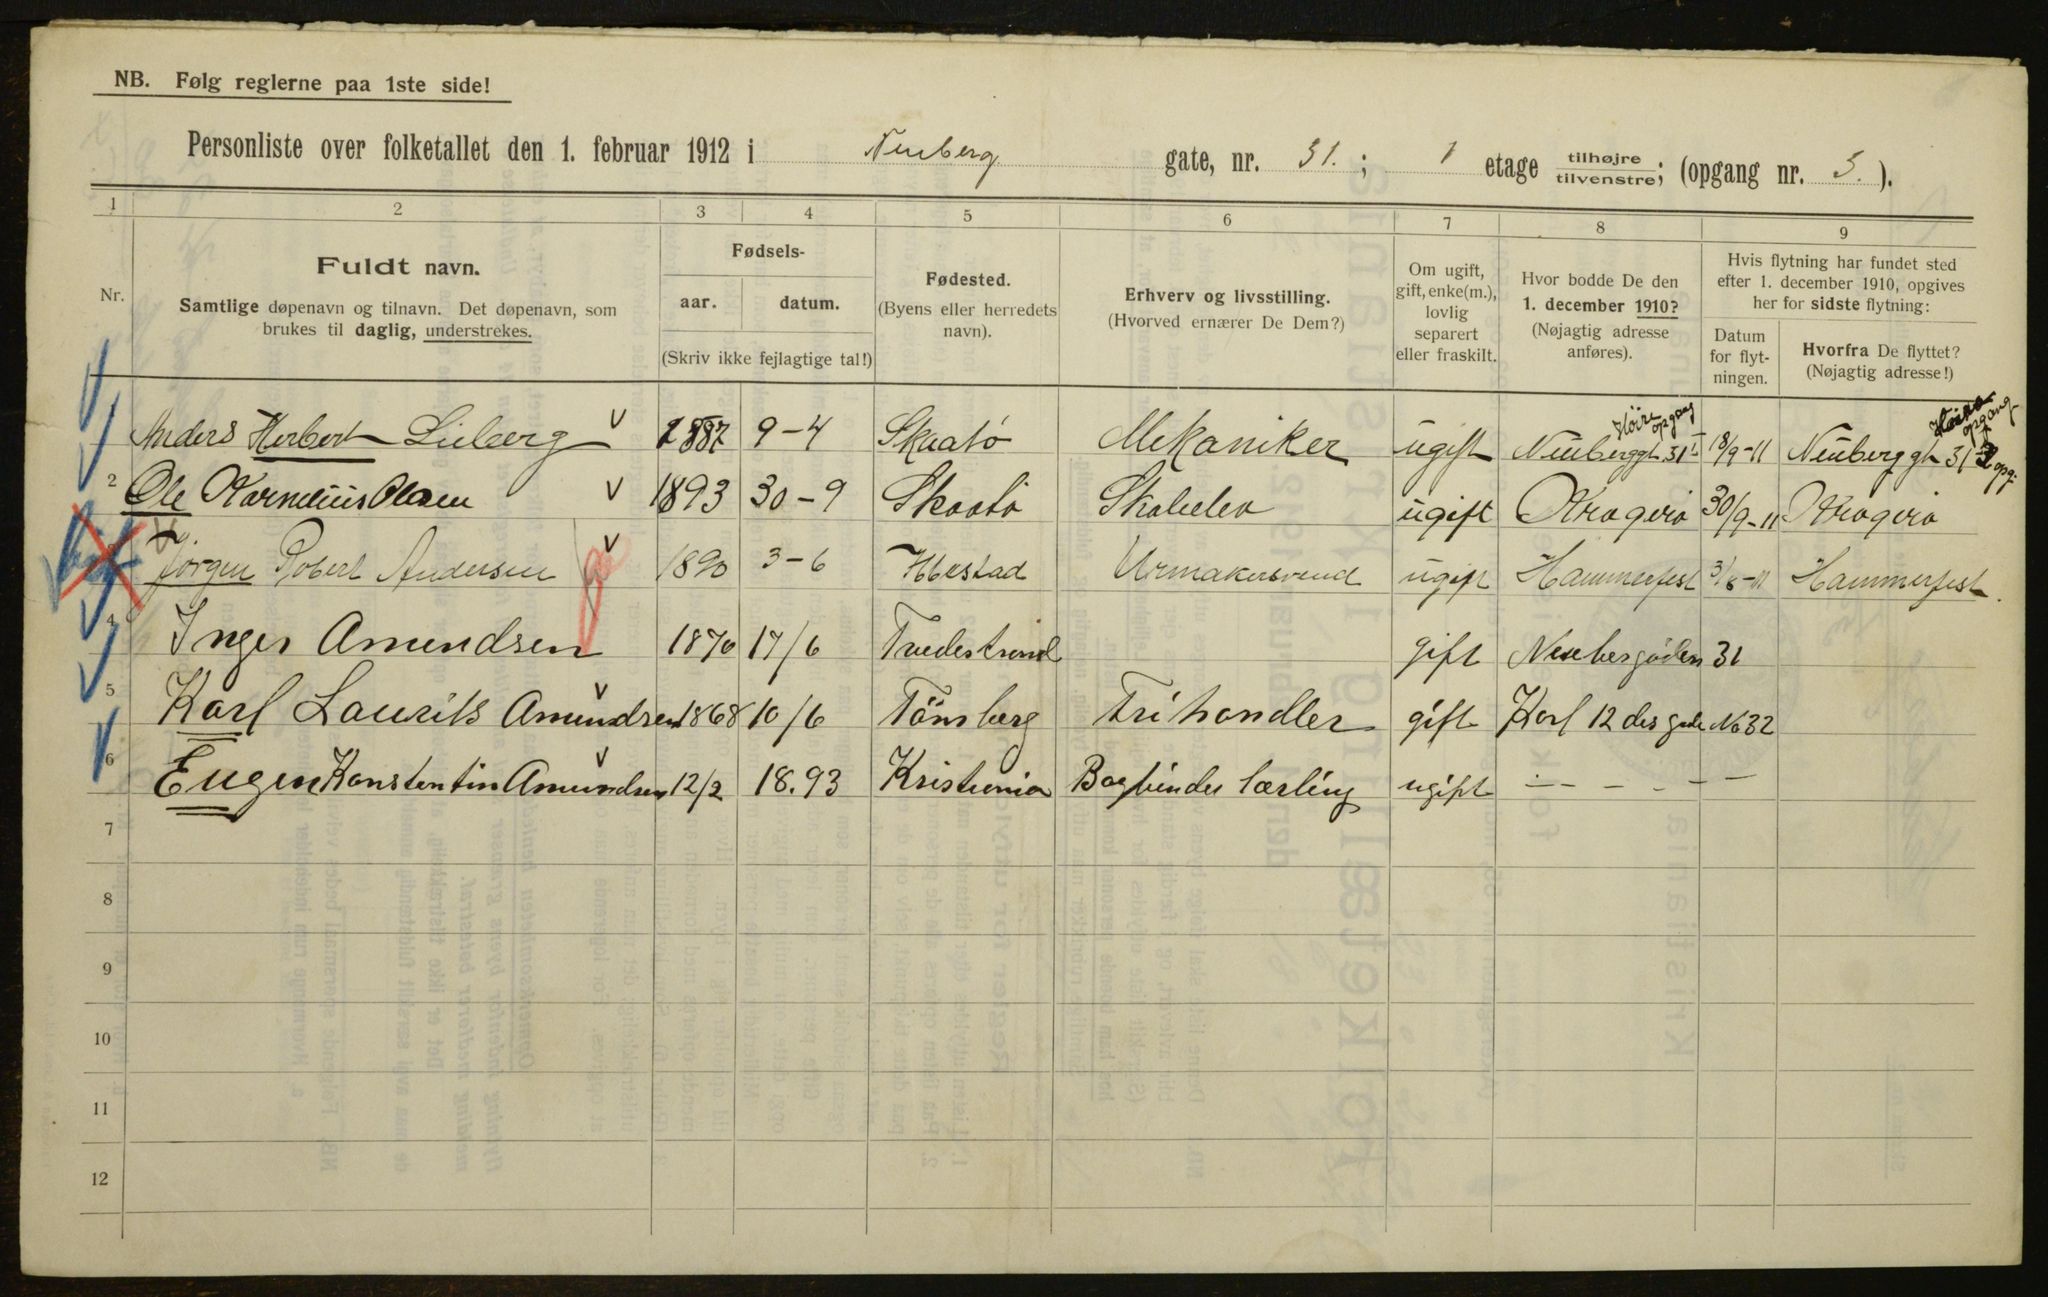 NB. Følg reglerne paa 1ste side!
Personliste over folketallet den 1. februar 1912 i Neuberg gate, nr. 31. ; 1 etage tilhøjre tilvenstre; (opgang nr. 3. ).
1 2 3 4 5 6 7 8 9
Nr.
Fuldt navn.
Samtlige døpenavn og tilnavn. Det døpenavn, som
brukes til daglig, understrekes.
Fødsels-
aar. datum.
(Skriv ikke fejlagtige tal!)
Fødested.
(Byens eller herredets
navn).
Erhverv og livsstilling.
(Hvorved ernærer De Dem?)
Om ugift,
gift, enke(m.),
lovlig
separert
eller fraskilt.
Hvor bodde De den
1. december 1910?
(Nøjagtig adresse
anføres).
Hvis flytning har fundet sted
efter 1. december 1910, opgives
her for sidste flytning:
Datum
for flyt-
ningen.
Hvorfra De flyttet?
(Nøjagtig adresse!)
Anders Herbert 1887 9-4 Skaatö Mekaniker ugift Neuberggt 31 I Höire opgang 18/9-11 Neuberggt 31 opg.
2 Ole Kornelius Olsen 1893 30-9 Skaatö ugift Kragerö 30/9-11 Kragerö
Jörgen Robert Andersen 1890 3-6 Ibestad Urmakersvend ugift Hammerfest 3/8-11 Hammerfest.
4 Inger Amundsen 1870 17/6 Tvedestrand gift 31
5 Karl Laurits Amundsen 1868 10/6 Tönsberg Frihandler gift Karl 12 des gade No 32
6 Eugen Konstentin Amundsen 12/2 18.93 Kristiania Bogbinder lærling ugift - - - - - -
7
8
9
10
11
12